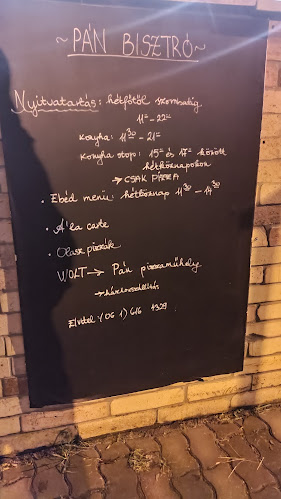 ~ PÁN BISZTRÓ ~
Nyitvatartás: hétfőtől szombatig
11⁰⁰ - 22⁰⁰
Konyha: 11³⁰ - 21⁰⁰
Konyha stop: 15⁰⁰ és 17⁰⁰ között
hétköznapokon
→ CSAK PIZZA
• Ebéd menü: hétköznap 11³⁰ - 14³⁰
• A'la carte
• Olasz pizzák
WOLT → Pán pizzaműhely
→ házhozszállítás
Elvitel: (06 1) 616 4329